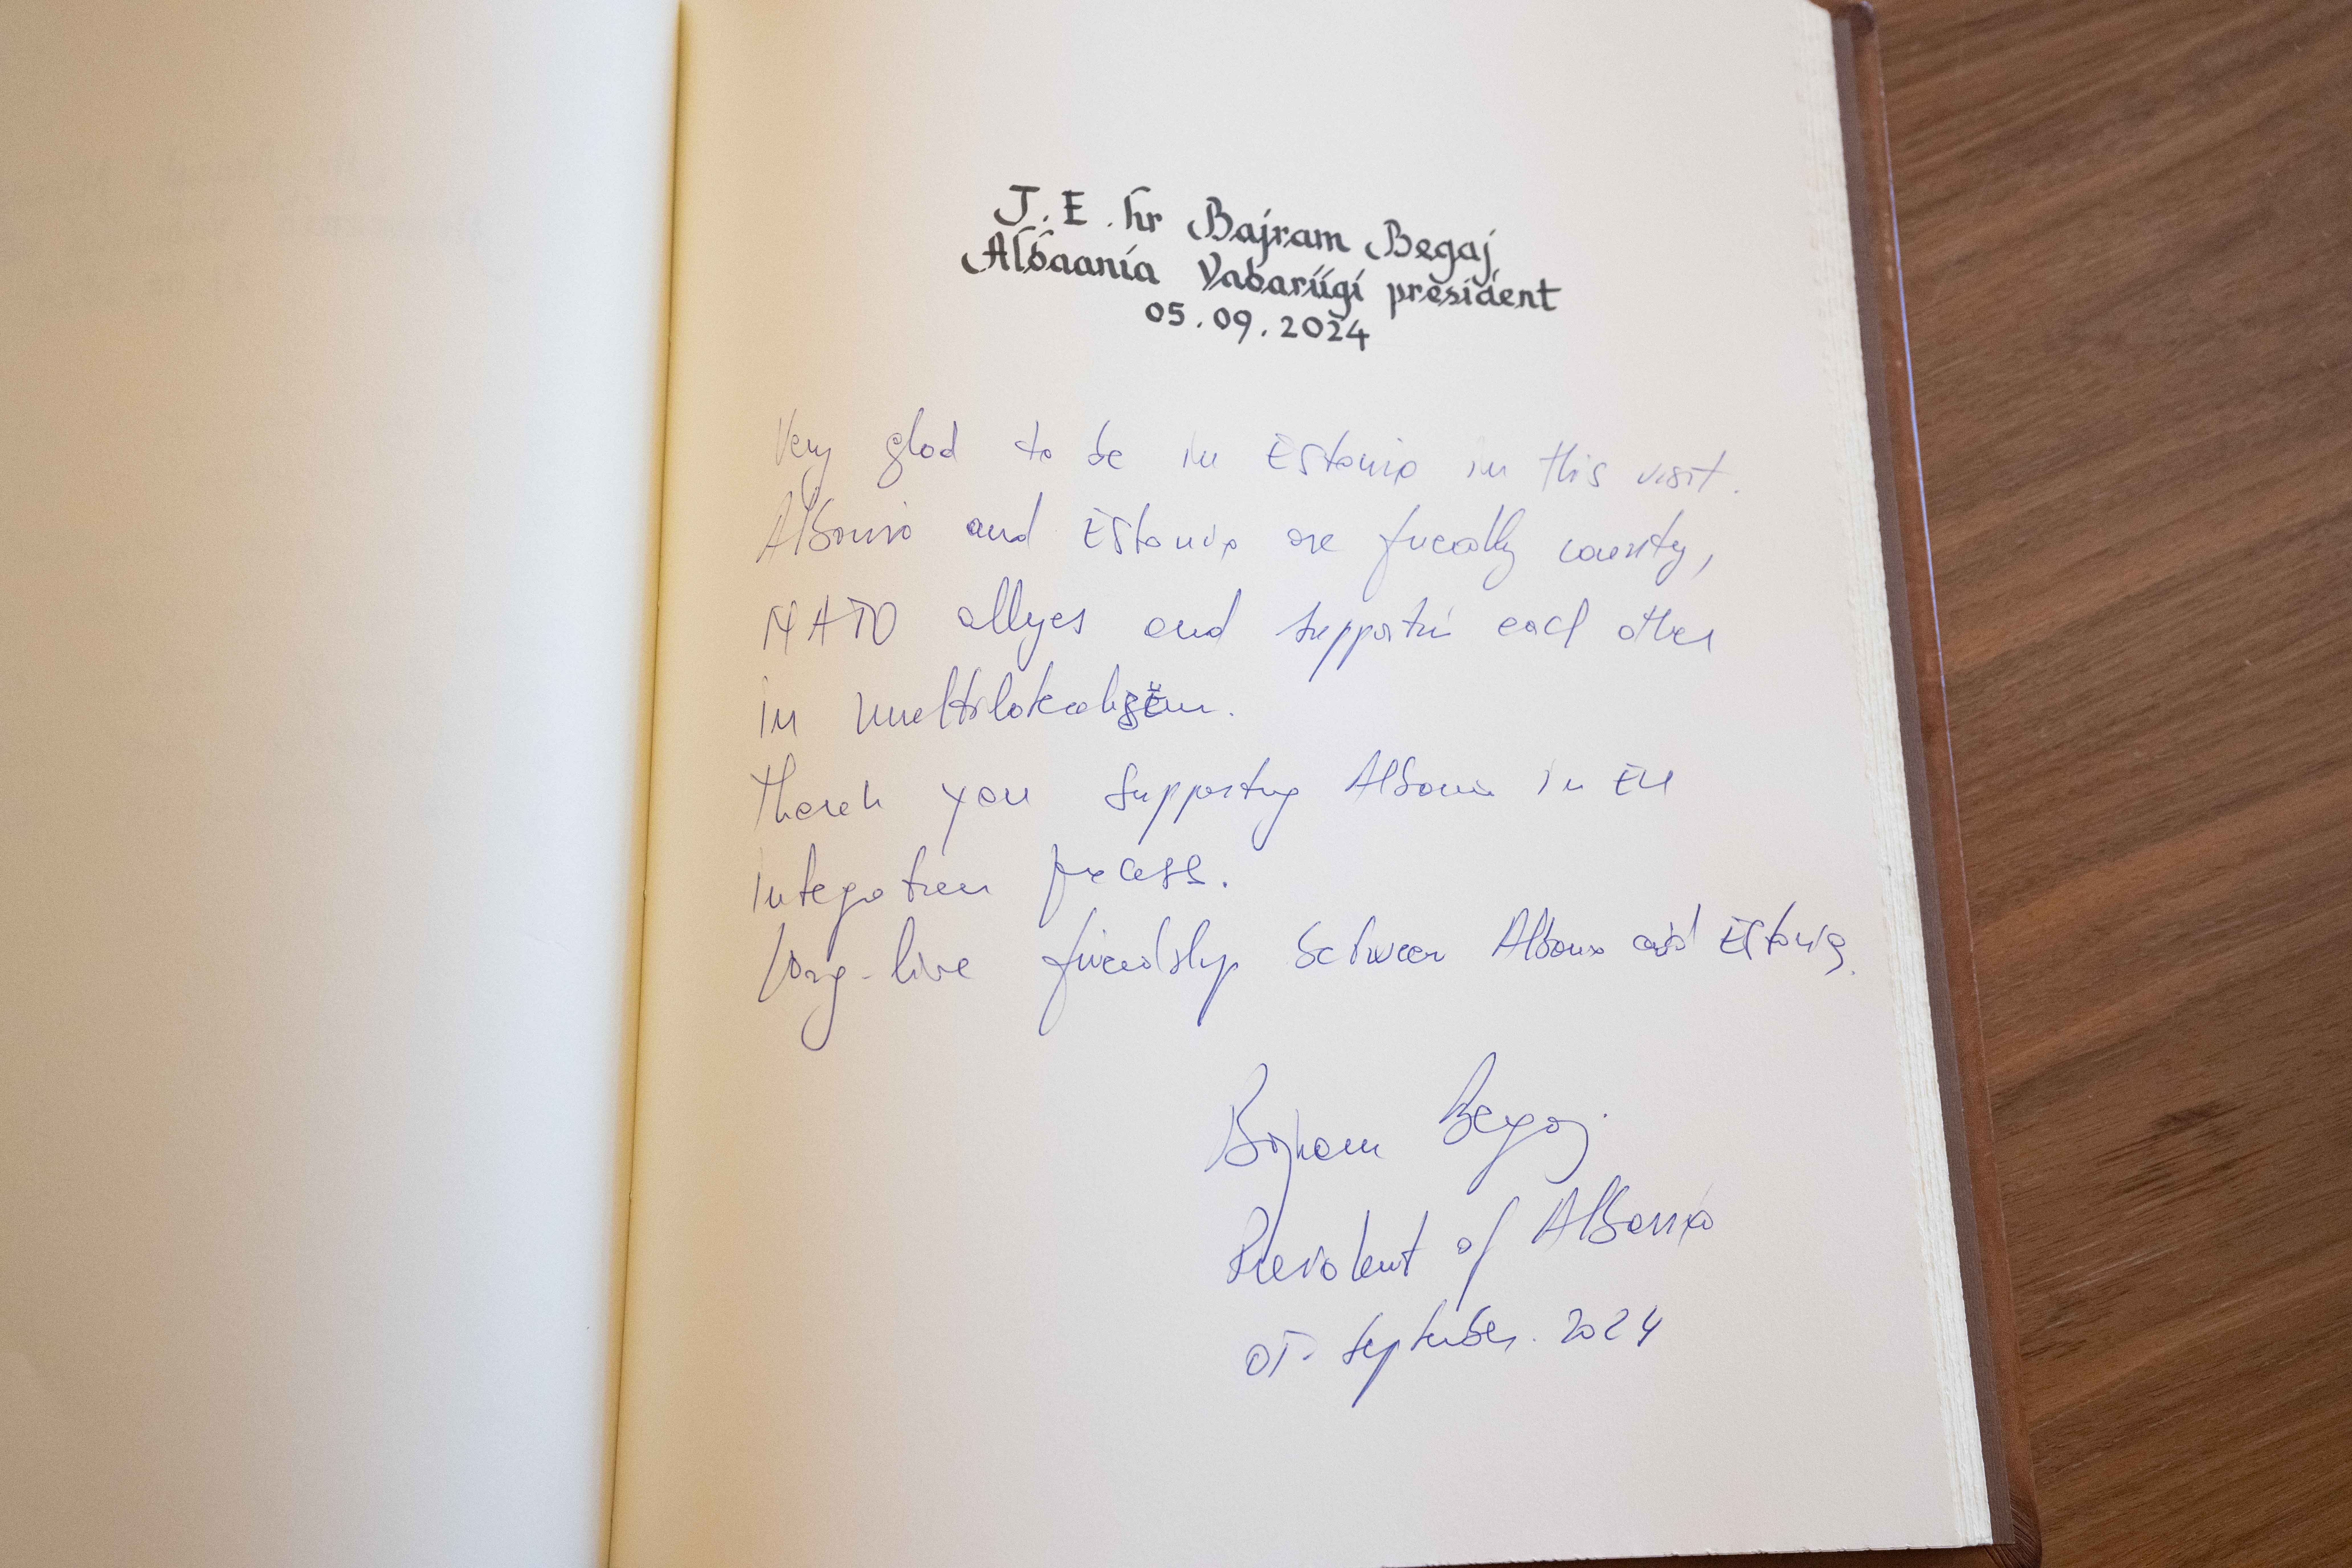 J.E. hr Bajram Begaj
Albaania Vabariigi president
05.09.2024
Very glad to be in Estonia in this visit.
Albania and Estonia are friendly county,
NATO allyes and supportin each other
in
Thank you supporting Albania in EU
integration process.
Long-live friendship between Albania and Estonia.
Bajram Begaj
President of Albania
05. September. 2024